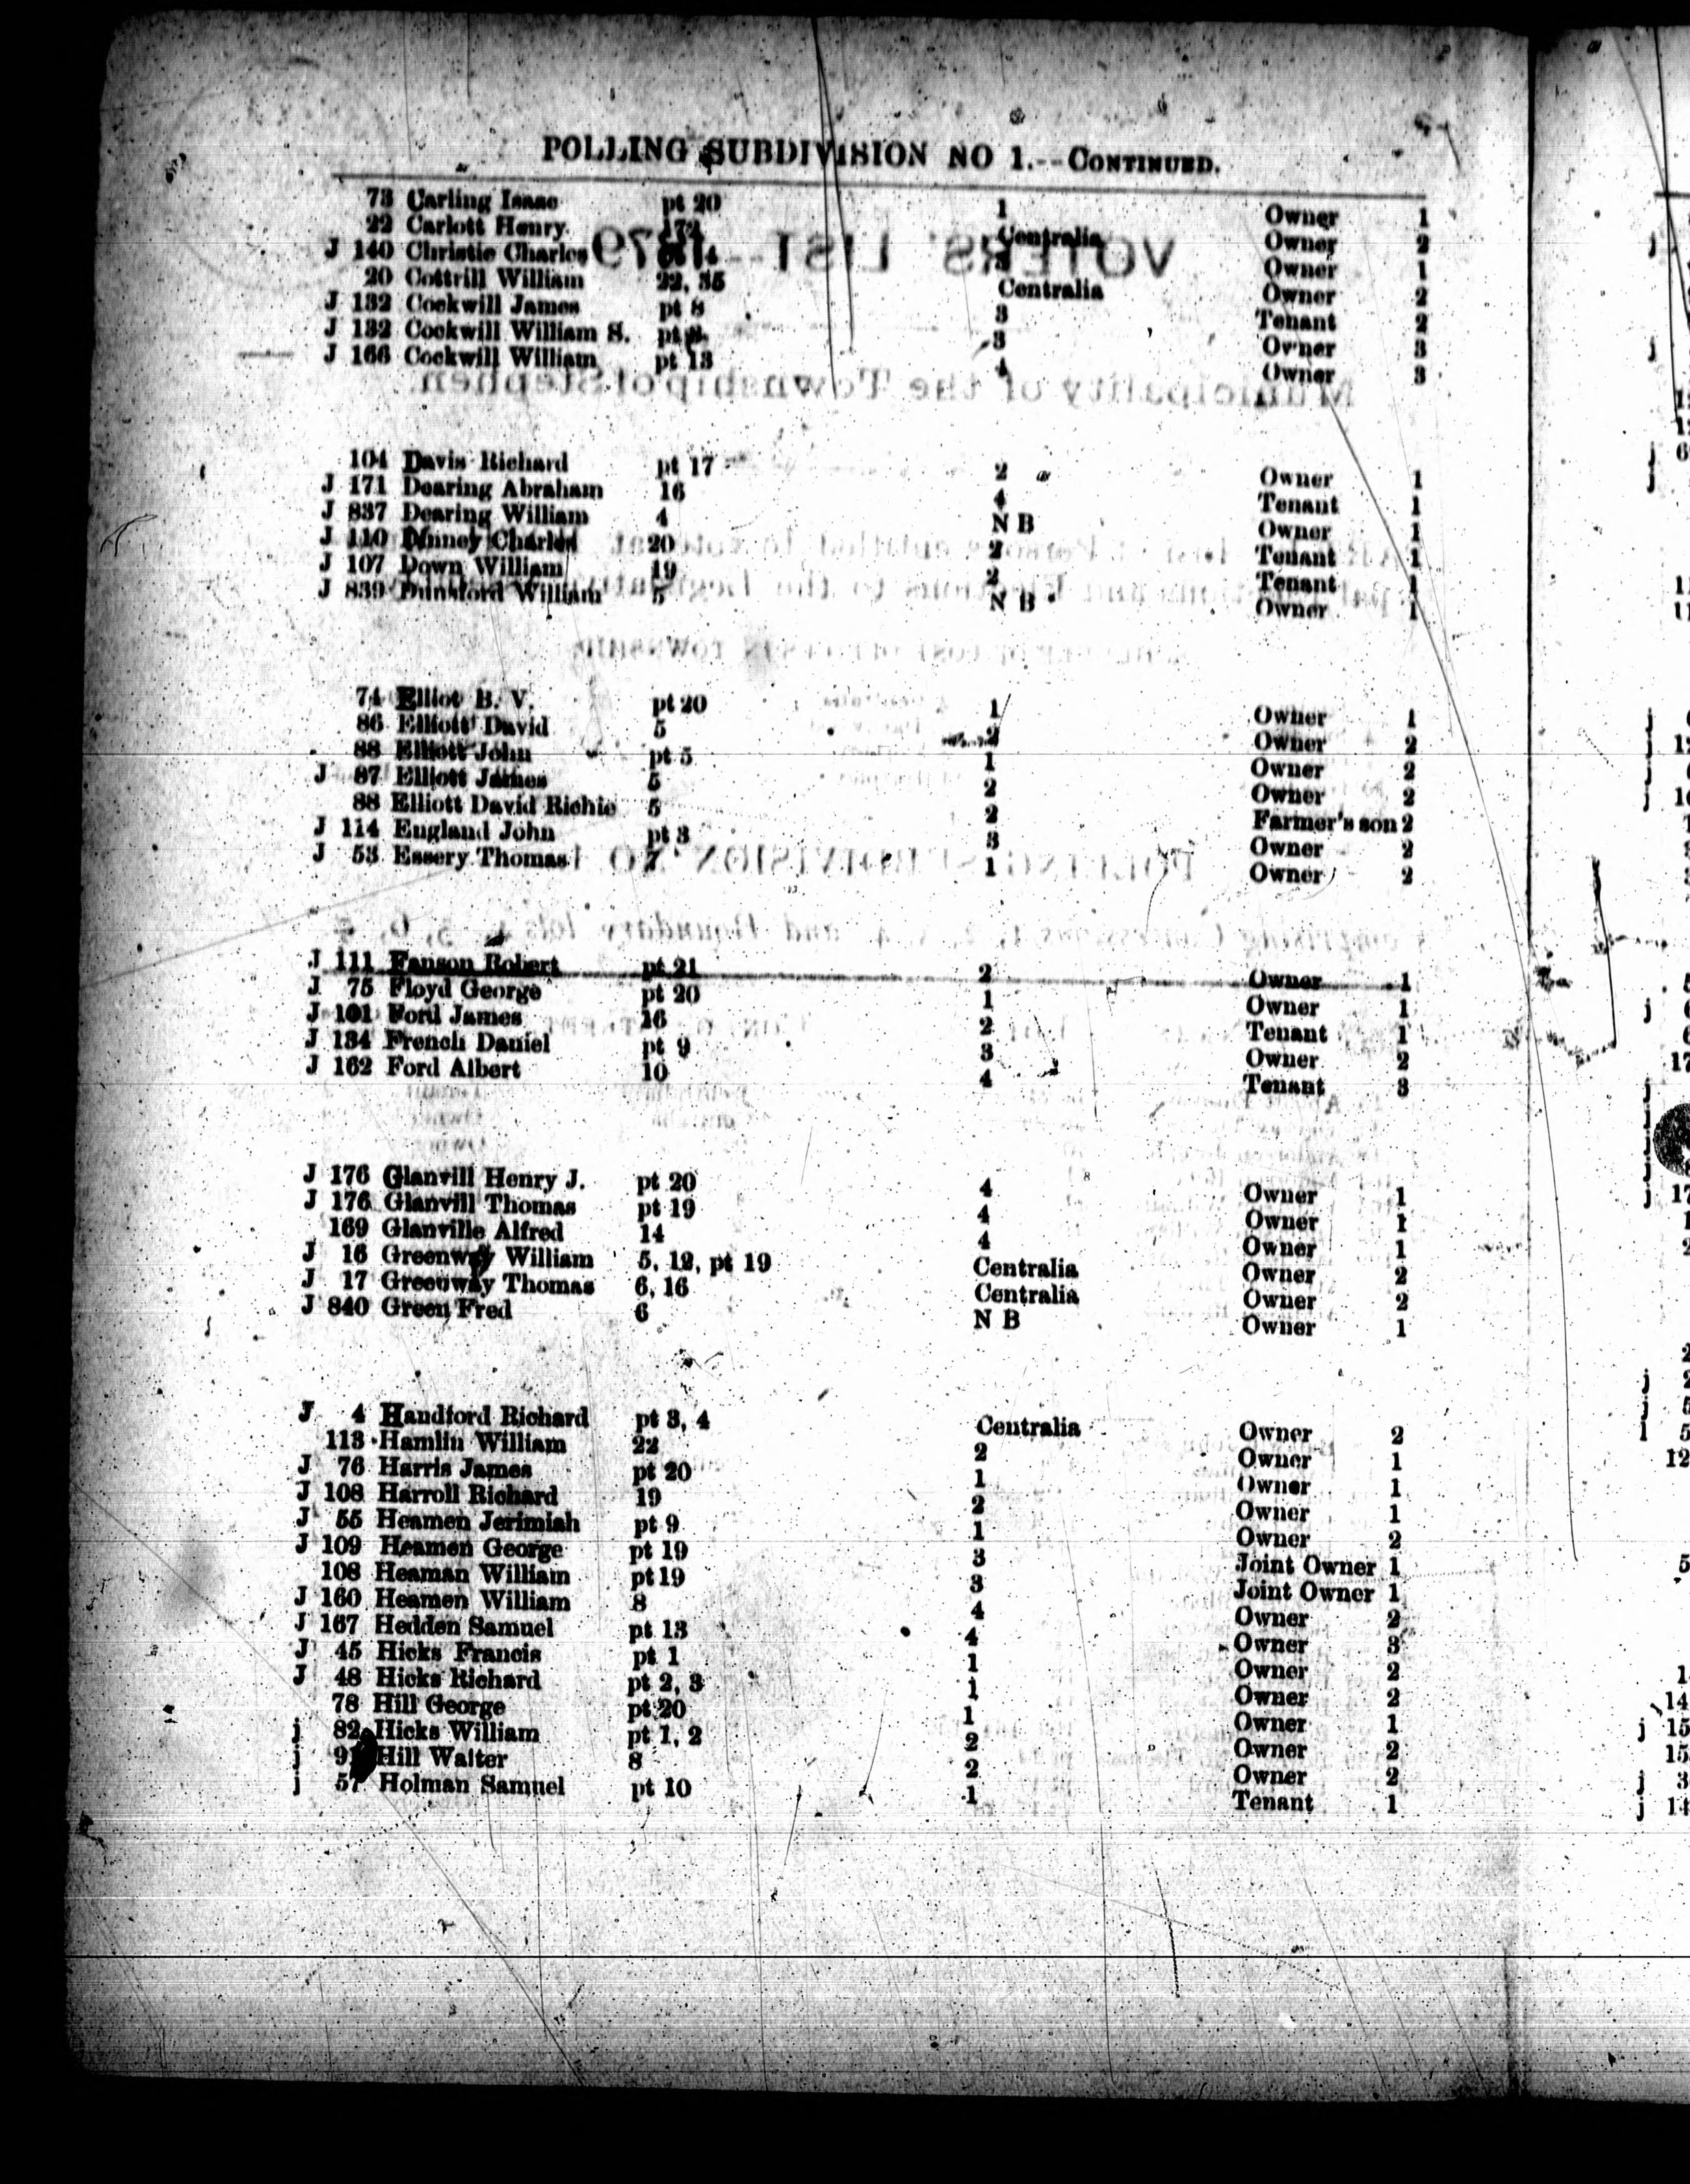 POLLING SUBDIVISION NO 1.--CONTINUED.
73 Carling Isaac pt 20 1 Owner 1
22 Carlott Henry 172 Centralia Owner 2
J 140 Christie Charles Owner 1
20 Cottrill William 22, 35 Centralia Owner 2
J 132 Cockwill James pt 8 3 Tenant 2
J 132 Cockwill William S. pt 3 Owner 3
J 166 Cockwill William pt 13 4 Owner 3
104 Davis Richard pt 17 2 Owner 1
J 171 Dearing Abraham 16 4 Tenant 1
J 837 Dearing William 4 N B Owner 1
J 110 Dinney Charles 20 2 Tenant 1
J 107 Down William 19 2 Tenant 1
J 839 Dunsford William 5 N B Owner 1
74 Elliot B. V. pt 20 1 Owner 1
86 Elliott David 5 2 Owner 2
88 Elliott John pt 5 1 Owner 2
J 87 Elliott James 5 2 Owner 2
88 Elliott David Richie 5 2 Farmer's son 2
J 114 England John pt 3 3 Owner 2
J 53 Essery Thomas 7 1 Owner 2
J 111 Fanson Robert pt 21 2 Owner 1
J 75 Floyd George pt 20 1 Owner 1
J 101 Ford James 16 2 Tenant 1
J 134 French Daniel pt 9 3 Owner 2
J 162 Ford Albert 10 4 Tenant 3
J 176 Glanvill Henry J. pt 20 4 Owner 1
J 176 Glanvill Thomas pt 19 4 Owner 1
169 Glanville Alfred 14 4 Owner 1
J 16 Greenway William 5, 12, pt 19 Centralia Owner 2
J 17 Greenway Thomas 6, 16 Centralia Owner 2
J 840 Green Fred 6 N B Owner 1
J 4 Handford Richard pt 3, 4 Centralia Owner 2
113 Hamlin William 22 2 Owner 1
J 76 Harris James pt 20 1 Owner 1
J 108 Harroll Richard 19 2 Owner 1
J 55 Heamen Jerimiah pt 9 1 Owner 2
J 109 Heamen George pt 19 3 Joint Owner 1
108 Heaman William pt 19 3 Joint Owner 1
J 160 Heamen William 8 4 Owner 2
J 167 Hedden Samuel pt 13 4 Owner 3
J 45 Hicks Francis pt 1 1 Owner 2
J 48 Hicks Richard pt 2, 3 1 Owner 2
78 Hill George pt 20 1 Owner 1
j 82 Hicks William pt 1, 2 2 Owner 2
j Hill Walter 8 2 Owner 2
j 57 Holman Samuel pt 10 1 Tenant 1